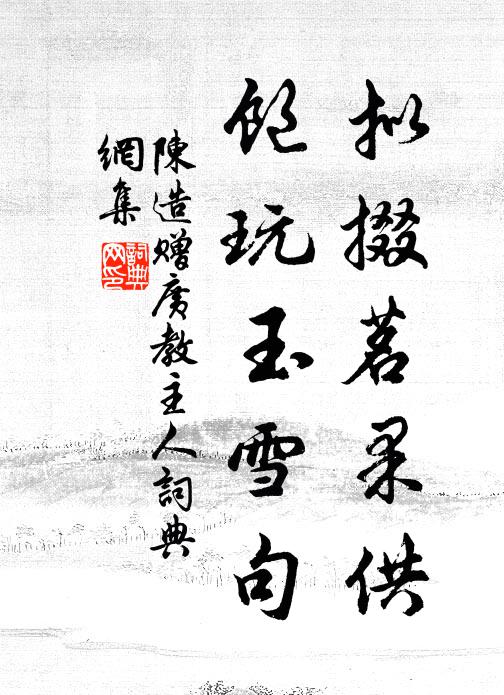 拟掇茗果供
飽玩玉雪句
陳造贈廣教主人詞典
網集
詞典
网印